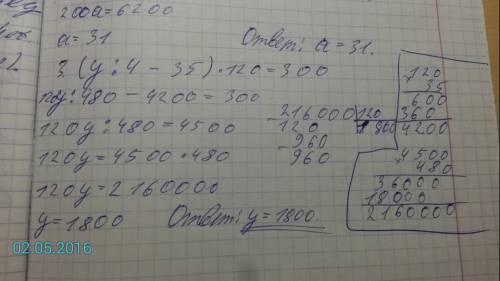 200a=6200
a=31
Ответ: a=31.
3. (y:4-35)·120=300
120y:480-4200=300
120y:480=4500
120y=4500·480
120y=2160000
y=1800
Ответ: y=1800.
-216000|120
120
1800
-960
960
120
35
600
360
4200
4500
480
36000
18000
2160000
02.05.2016